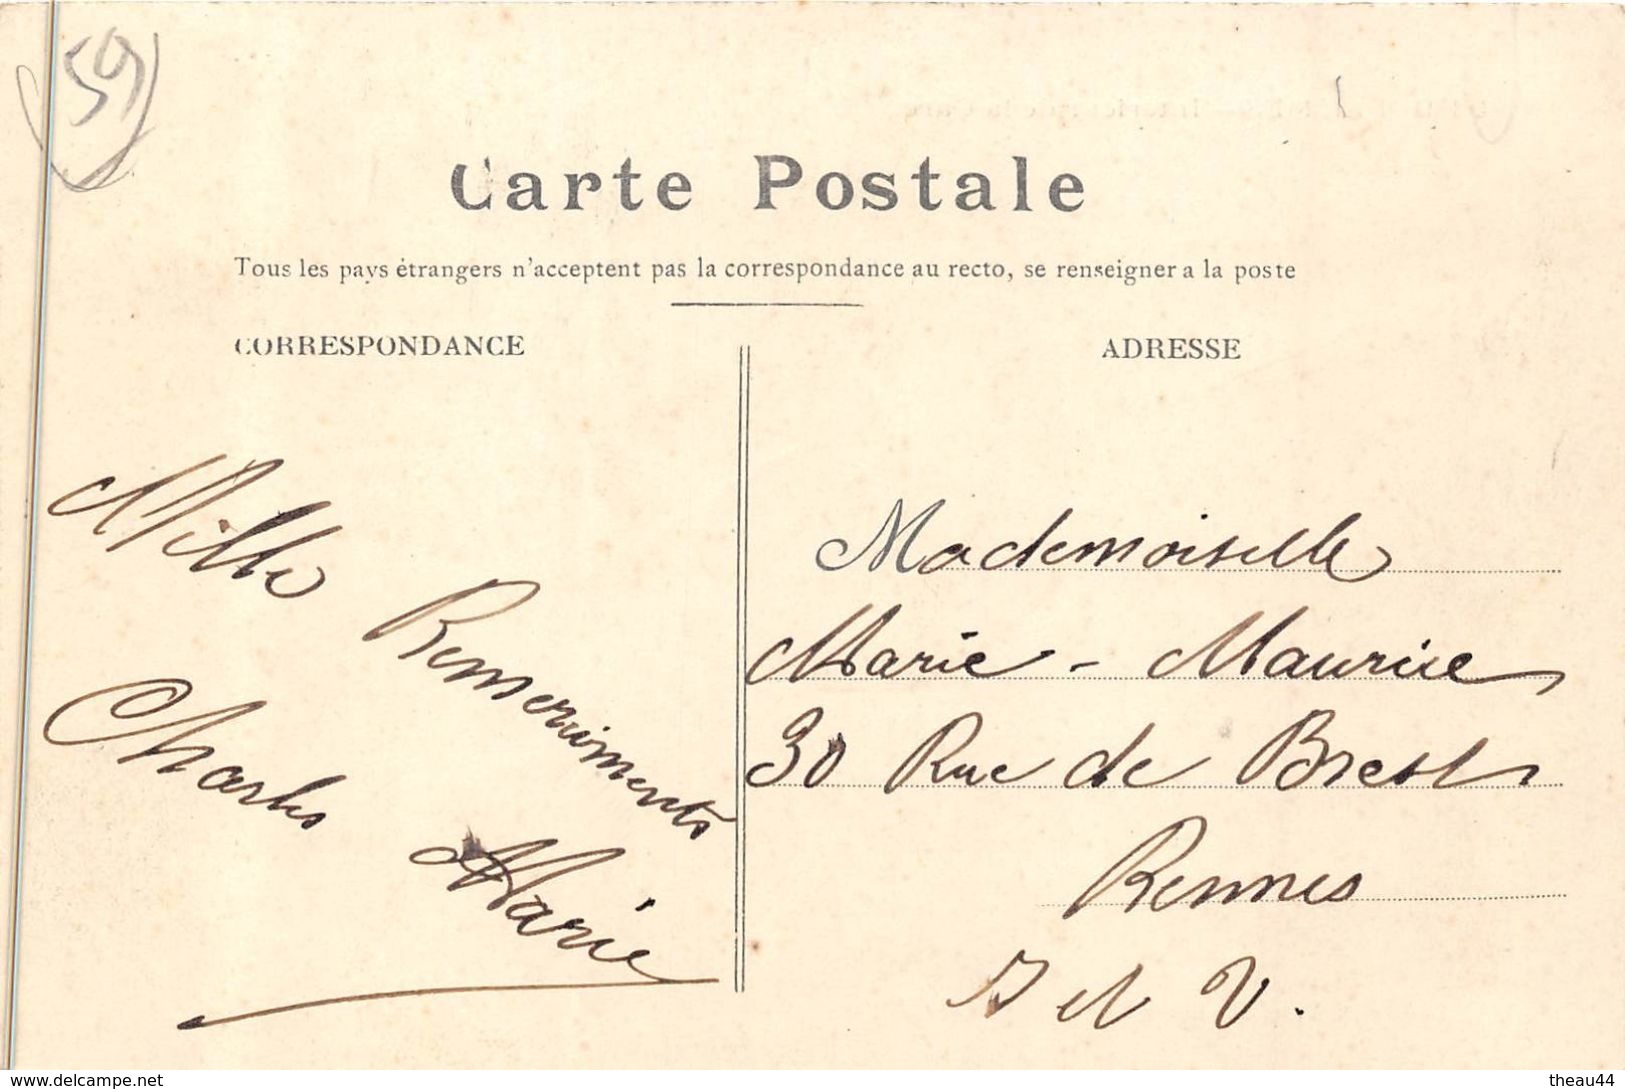 59
Carte Postale
Tous les pays étrangers n'acceptent pas la correspondance au recto, se renseigner a la poste
CORRESPONDANCE
ADRESSE
Mille Remerciments
Charles Marie
Mademoiselle
Marie - Maurice
30 Rue de Brest
Rennes
I et V.
www.delcampe.net
theau44